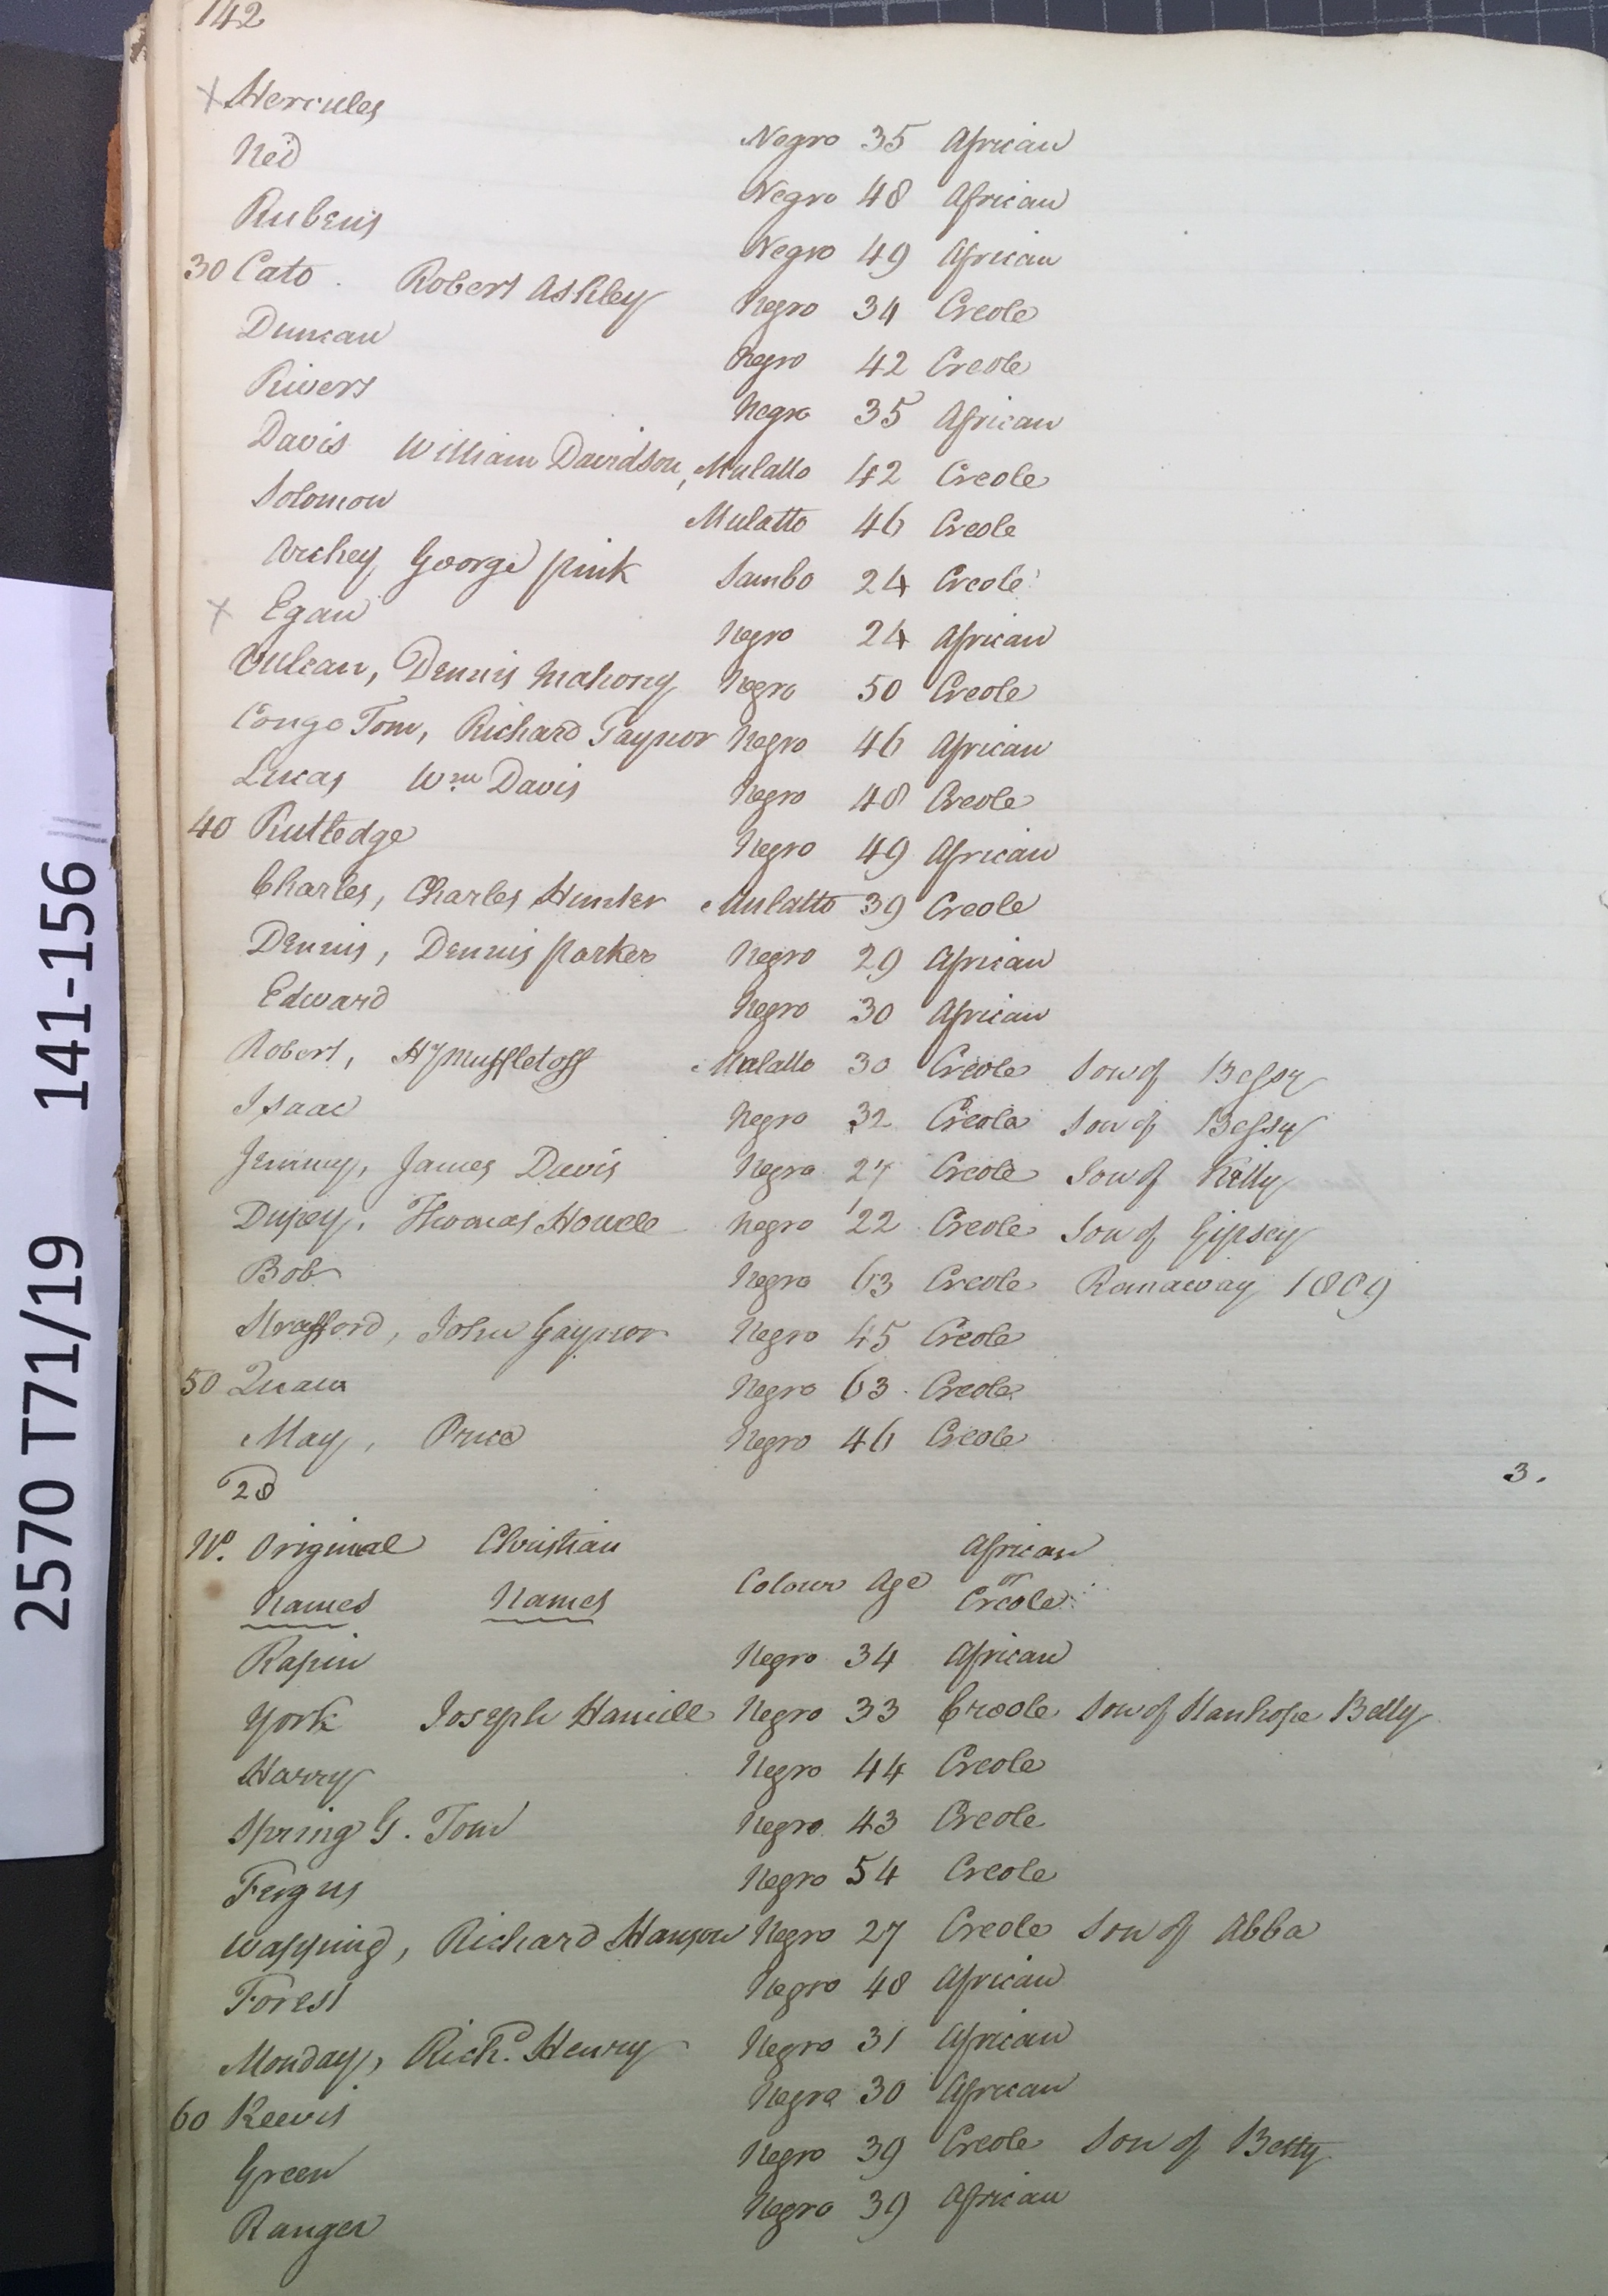 142
x Hercules Negro 35 African
Ned Negro 48 African
Rubens Negro 49 African
30 Cato . Robert Ashley Negro 34 Creole
Duncan Negro 42 Creole
Rivers Negro 35 African
Davis William Davidson, Mulatto 42 Creole
Solomon Mulatto 46 Creole
Archey George Pink Sambo 24 Creole
x Egan Negro 24 African
Vulcan, Dennis Mahony Negro 50 Creole
Congo Tom, Richard Gaynor Negro 46 African
Lucas Wm Davis Negro 48 Creole
40 Rutledge Negro 49 African
Charles, Charles Hunter Mulatto 39 Creole
Dennis, Dennis Parker Negro 29 African
Edward Negro 30 African
Robert, Hy Muffletoff Mulatto 30 Creole Son of Bessy
Isaac Negro 32 Creole Son of Bessy
Jemmy, James Davis Negro 27 Creole Son of Kitty
Dupey, Thomas Howell Negro 22 Creole Son of Gipsey
Bob Negro 63 Creole Runaway 1809
Strafford, John Gaynor Negro 45 Creole
50 Quaw Negro 63 Creole
May, Price Negro 46 Creole
28 3.
No. Original Christian African
Names Names Colour Age or Creole
Rapin Negro 34 African
York Joseph Hamill Negro 33 Creole Son of Stanhope Betty
Harry Negro 44 Creole
Spring G. Tom Negro 43 Creole
Fergus Negro 54 Creole
Wapping, Richard Hanson Negro 27 Creole Son of Abba
Forest Negro 48 African
Monday, Richd. Henry Negro 31 African
60 Keevis Negro 30 African
Green Negro 39 Creole Son of Betty
Ranger Negro 39 African
2570 T71/19 141-156